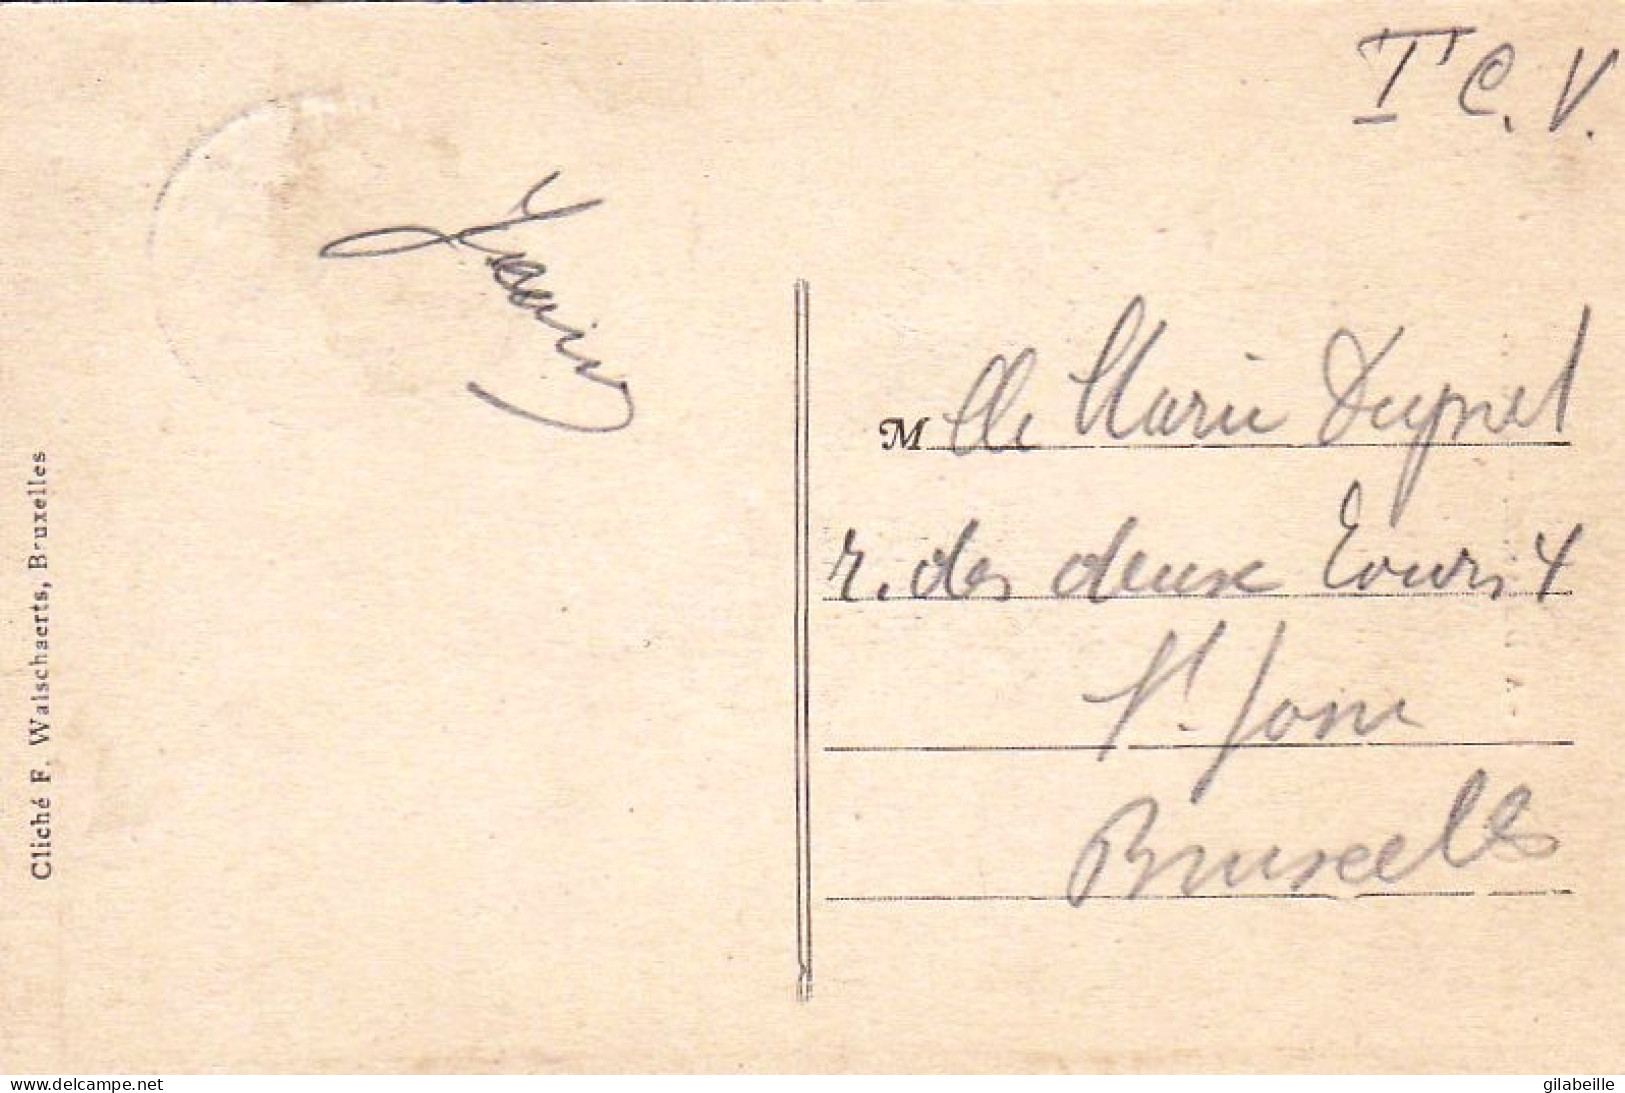 T C. V.
Mlle Marie Dupret
r. des deux Tours 4
St. Josse
Bruxelles
Cliché F. Walschaerts, Bruxelles
https://www.delcampe.net
gilabeille